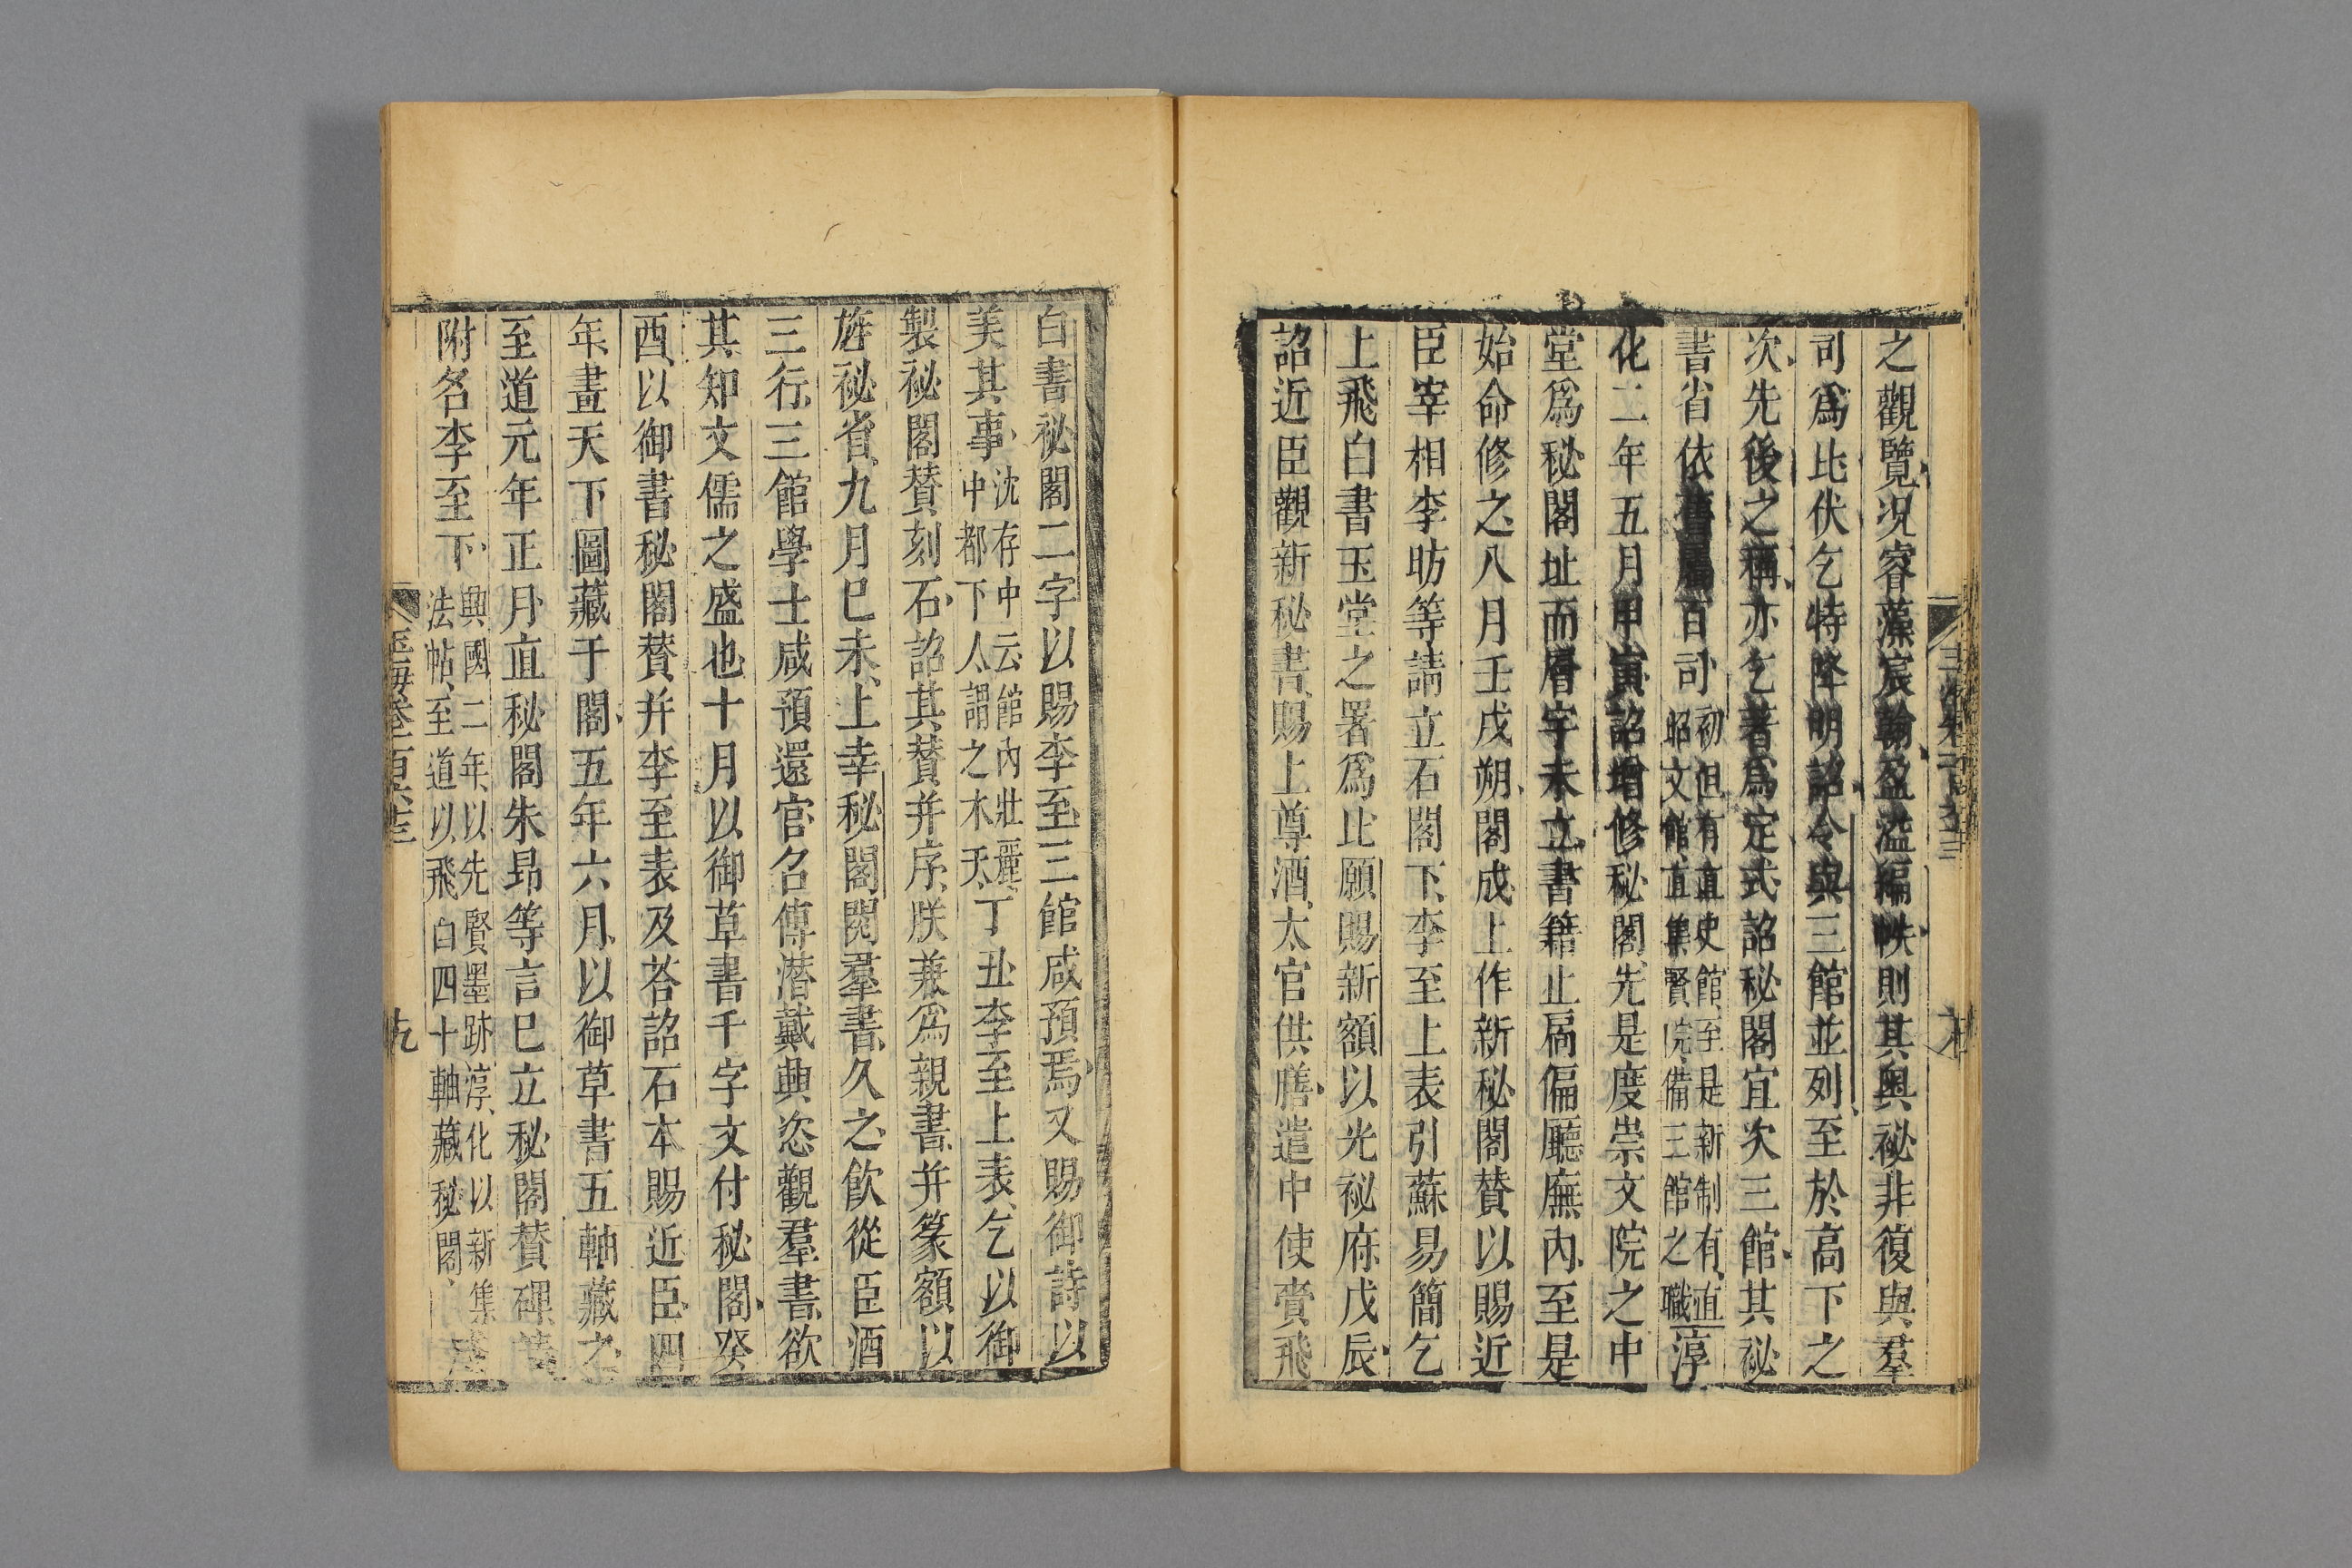 之觀覽况睿藻宸翰盈溢編帙則其奧祕非復與羣
司爲比伏乞特降明詔令與三館並列至於高下之
次先後之稱亦乞著爲定式詔秘閣宜次三館其祕
書省依舊屬百司初但有直史館至是新制有直昭文館直集賢院備三館之職淳
化二年五月甲寅詔增修秘閣先是度崇文院之中
堂爲秘閣址而層宇未立書籍止扃偏廳廡內至是
始命修之八月壬戌朔閣成上作新秘閣贊以賜近
臣宰相李昉等請立石閣下李至上表引蘇易簡乞
上飛白書玉堂之署爲比願賜新額以光祕府戊辰
詔近臣觀新秘書賜上尊酒太官供膳遣中使賫飛
白書祕閣二字以賜李至三館咸預焉又賜御詩以
美其事沈存中云館內壯麗中都下人謂之木天丁丑李至上表乞以御
製祕閣贊刻石詔其贊并序朕兼爲親書并篆額以
旌祕省九月巳未上幸秘閣閱羣書久之飲從臣酒
三行三館學士咸預還官名傳潛戴興恣觀羣書欲
其知文儒之盛也十月以御草書千字文付秘閣癸
酉以御書秘閣贊并李至表及荅詔石本賜近臣四
年畫天下圖藏于閣五年六月以御草書五軸藏之
至道元年正月直秘閣朱昂等言巳立秘閣贊碑請
附名李至下興國二年以先賢墨跡淳化以新集法帖至道以飛白四十軸藏秘閣
玉海卷一百六十三
九